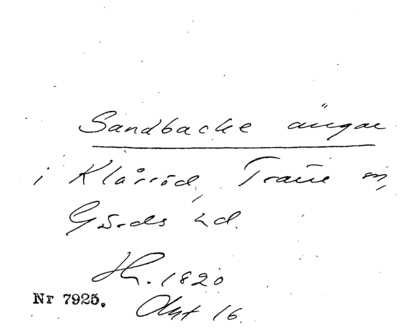 Sandbacke ängar
i Klåröd, Trane sn,
Gärds hd.
Hs. 1820
Nr 7925.
Akt 16